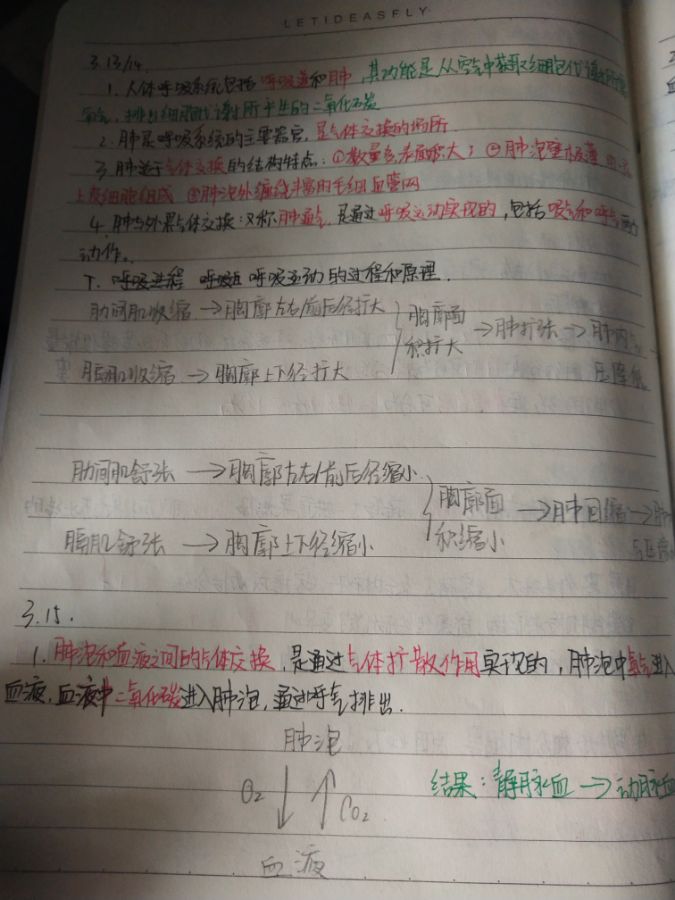 LETIDEASFLY
3.13/14
1. 人体呼吸系统包括呼吸道和肺,其功能是从空气中获取细胞代谢所需
氧气,排出细胞代谢所产生的二氧化碳
2. 肺是呼吸系统的主要器官,是气体交换的场所
3. 肺适于气体交换的结构特点:①数量多,表面积大;②肺泡壁极薄
上皮细胞组成 ③肺泡外缠绕丰富的毛细血管网
4. 肺与外界气体交换:又称肺通气,是通过呼吸运动实现的,包括吸气和呼气两个
动作。
5. 呼吸运动的过程和原理.
肋间肌收缩→胸廓左右/前后径扩大
膈肌收缩→胸廓上下径扩大
胸廓面
积扩大
→肺扩张→肺内气
压降低
肋间肌舒张→胸廓左右/前后径缩小
膈肌舒张→胸廓上下径缩小
胸廓面
积缩小
→肺回缩→肺
3.15.
1. 肺泡和血液之间的气体交换,是通过气体扩散作用实现的,肺泡中氧气进入
血液,血液中二氧化碳进入肺泡,通过呼气排出.
肺泡
O₂ ↓ ↑ CO₂
血液
结果:静脉血→动脉血